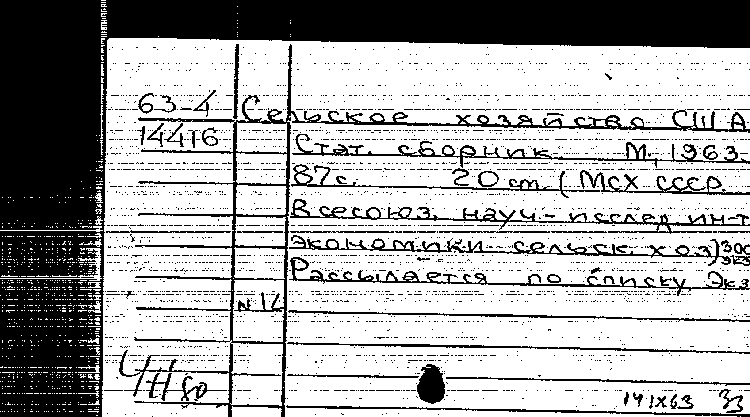 63-4 Сельское хозяйство США
14416 Стат. сборник. М., 1963-
87 с. 20 cm (МСХ СССР.
Всесоюз. науч.-исслед. ин-т
экономики сельск. хоз) 300 экз
Рассылается по списку. Экз
N 16
80
141X63 33